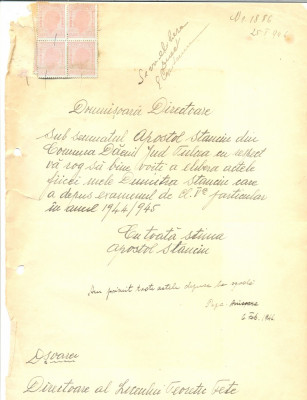 No. 1886
Se va elibera
Domnișoară Directoare
Subsemnatul Apostol Stanciu din
Comuna Dăeni Jud Tulcea cu respect
vă rog să bine voiți a elibera actele
fiicei mele Dumitra Stanciu care
a depus examenul de cl. Va particular
în anul 1944/945
Cu toată stima
Apostol Stanciu
Am primit toate actele depuse la școală
6 Feb. 1946
D șoarei
Directoare al Liceului Teoretic Fete